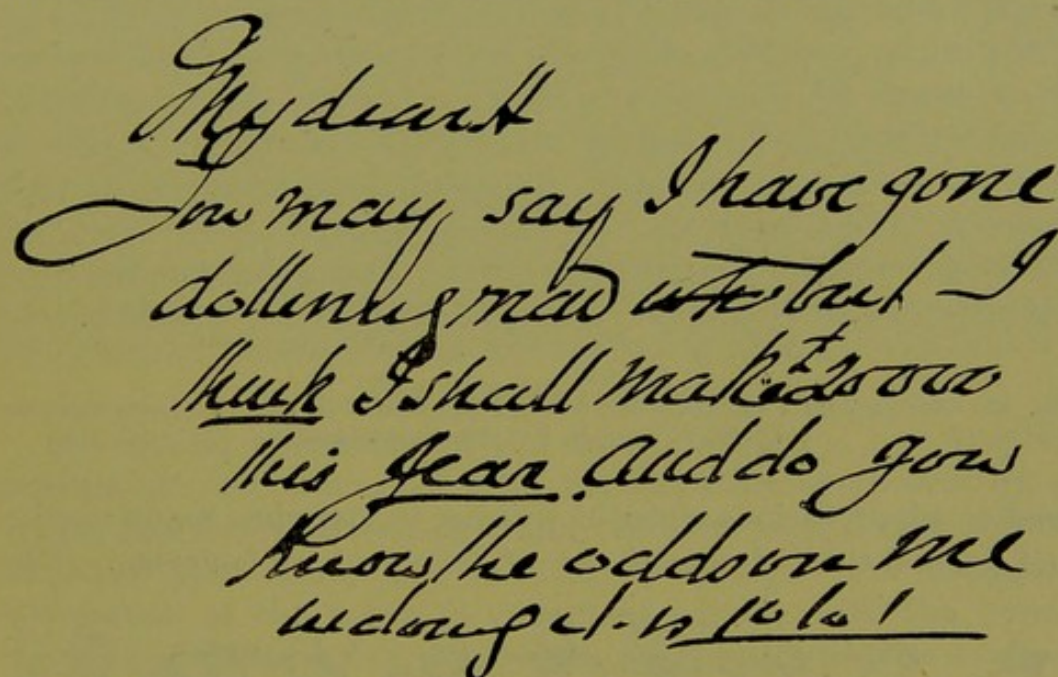 My dear H
You may say I have gone
mad but I
think I shall make £20000
this year. And do you
know the odds on me
in doing it is 10 to 1